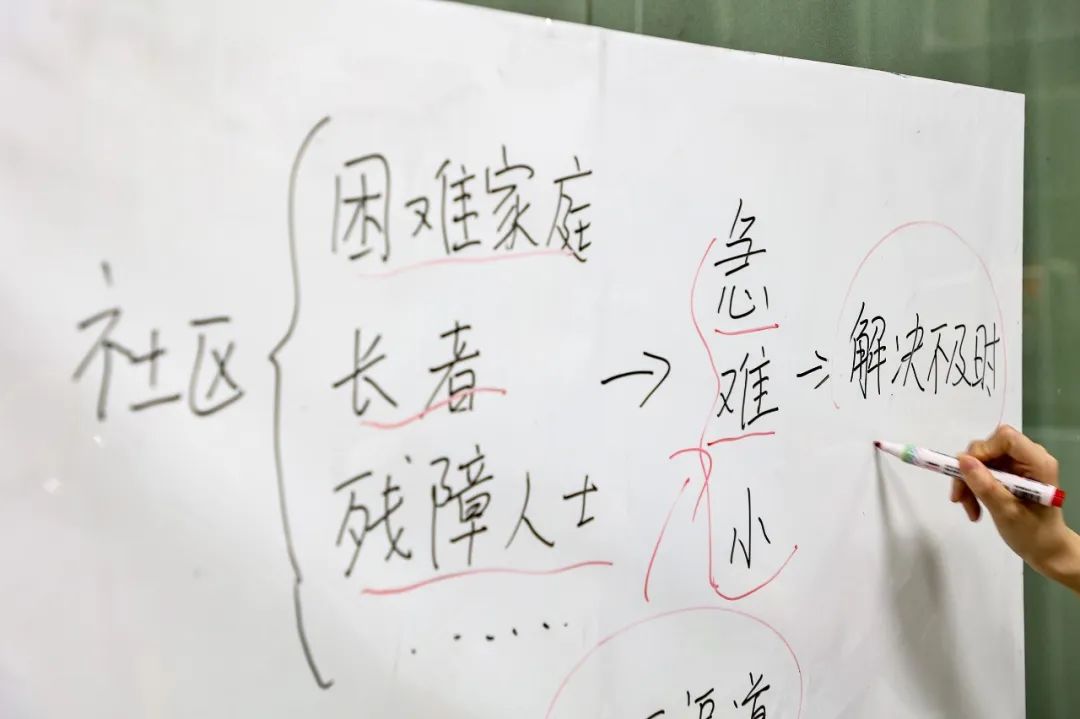 社区
困难家庭
长者
残障人士
……
→
急
难
小
⇒ 解决不及时
渠道